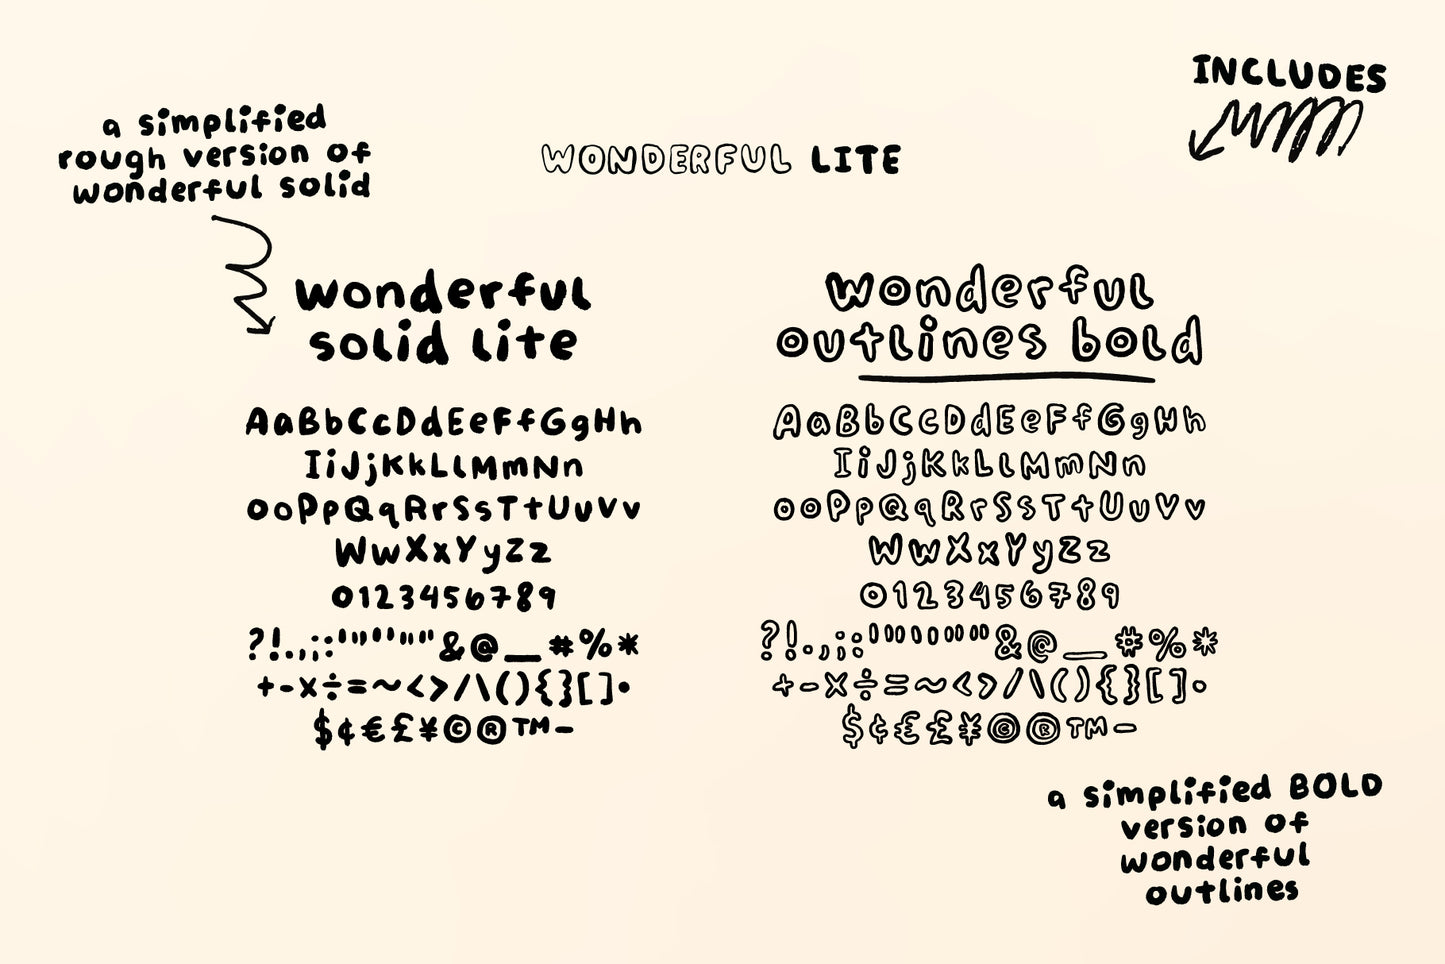 INCLUDES
a simplified
rough version of
wonderful solid
WONDERFUL LITE
wonderful
solid lite
AaBbCcDdEeFfGgHh
IiJjKkLlMmNn
OoPpQqRrSsTtUuVv
WwXxYyZz
0123456789
?!.,;:'"‘’“”&@_#%*
+-×÷=~<>/\(){}[]•
$¢€£¥©®™-
wonderful
outlines bold
AaBbCcDdEeFfGgHh
IiJjKkLlMmNn
OoPpQqRrSsTtUuVv
WwXxYyZz
0123456789
?!.,;:'"‘’“”&@_#%*
+-×÷=~<>/\(){}[]•
$¢€£¥©®™-
a simplified BOLD
version of
wonderful
outlines